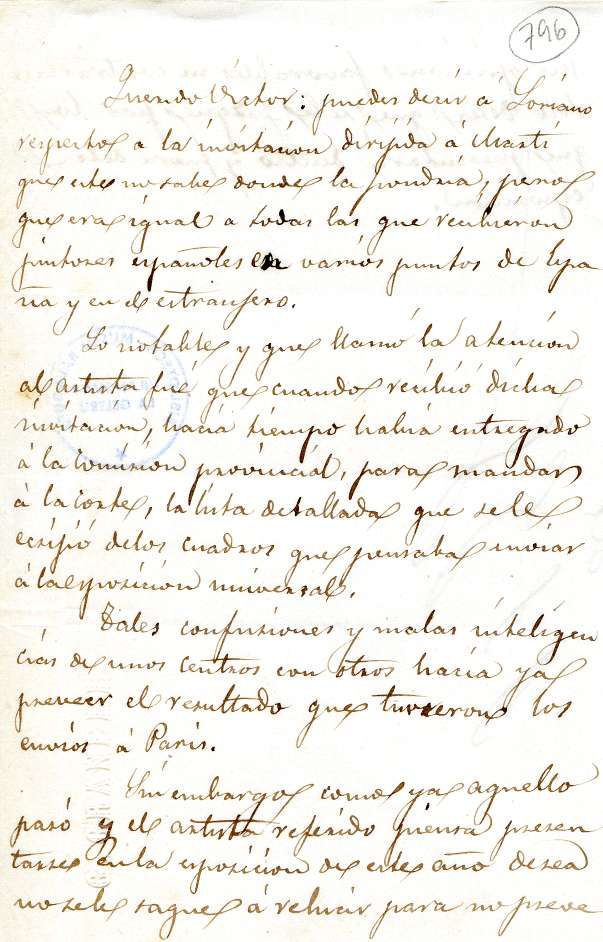 796
Querido Victor: puedes decir á Soriano
respecto a la invitacion dirijida á Martí
que este no sabe donde la pondria, pero
que era igual a todas las que recibieron
pintores españoles en varios puntos de Espa
ña y en el estranjero.
Lo notable y que llamó la atención
al artista fué que cuando recibió dicha
invitacion, hacia tiempo habia entregado
á la Comision provincial, para mandar
á la corte, la lista detallada que se le
ecsijió de los cuadros que pensaba enviar
á la exposicion universal.
Tales confusiones y malas inteligen
cias de unos centros con otros hacia ya
preveer el resultado que tuvieron los
envios á Paris.
Sin embargo como ya aquello
pasó y el artista referido piensa presen
tarse en la exposicion de este año desea
no se le saque á relucir para no preve